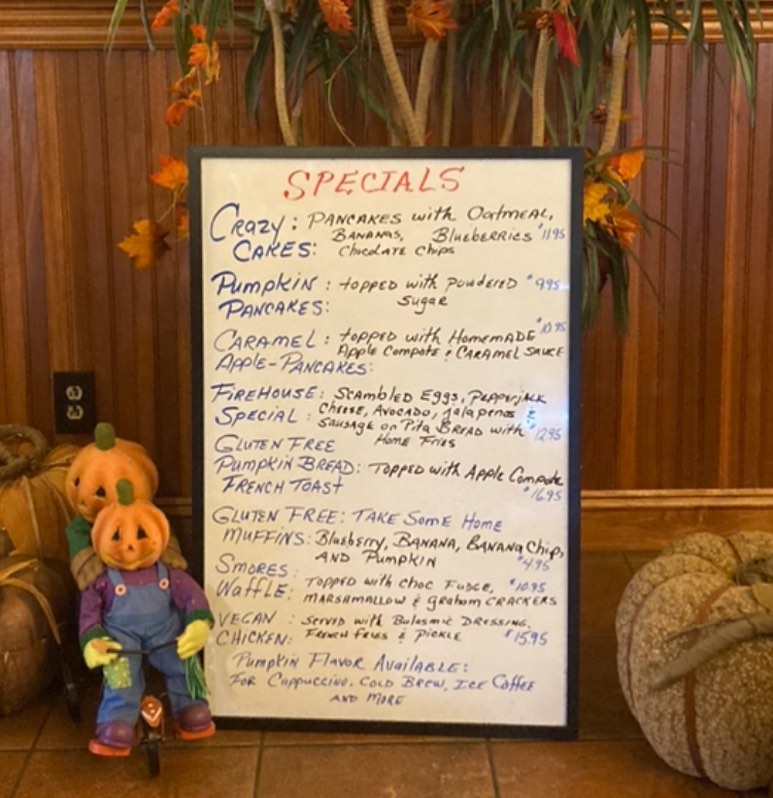 SPECIALS
Crazy: PANCAKES with OatMEAL,
BANANAS, Blueberries $11.95
CAKES: Chocolate Chips
Pumpkin: topped with powdered $9.95
PANCAKES: Sugar
$10.95
CARAMEL: topped with HOMEMADE
Apple Compote & CARAMEL SAUCE
Apple-PANCAKES:
FIREHOUSE: Scambled Eggs, Pepperjack
SPECIAL: Cheese, Avocado, Jalapenos &
Sausage on Pita BREAD with $12.95
GLUTEN FREE Home Fries
Pumpkin BREAD: Topped with Apple Compote
FRENCH TOAST $16.95
GLUTEN FREE: TAKE Some Home
MUFFINS: Blueberry, BANANA, BANANA Chip,
AND Pumpkin $4.95
SMORES:
Topped with Choc Fudge, $10.95
Waffle: MARSAMALLOW & Graham CRACKERS
VEGAN: Served with Balasmic DRESSING,
CHICKEN: French Fries & Pickle $15.95
Pumpkin Flavor Available:
For Cappuccino, COLD BREW, ICE Coffee
AND MORE